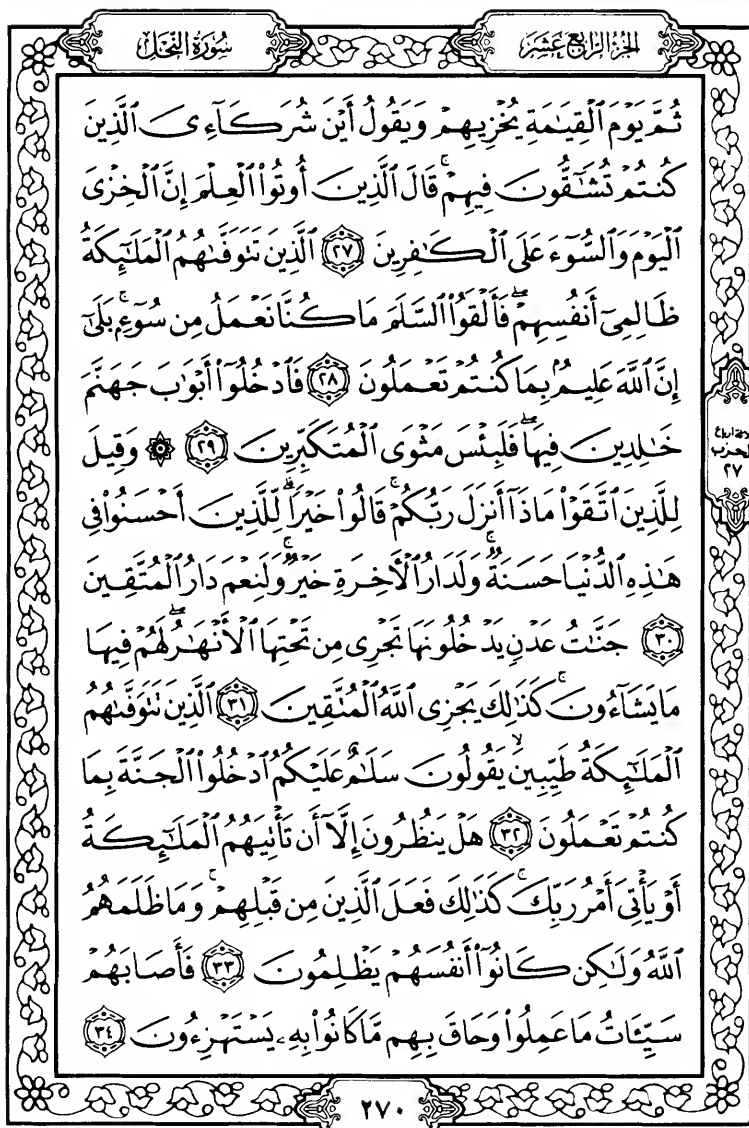 الجزء الرابع عشر
سورة النحل
ثُمَّ يَوْمَ ٱلْقِيَٰمَةِ يُخْزِيهِمْ وَيَقُولُ أَيْنَ شُرَكَآءِىَ ٱلَّذِينَ
كُنتُمْ تُشَٰٓقُّونَ فِيهِمْ ۚ قَالَ ٱلَّذِينَ أُوتُوا۟ ٱلْعِلْمَ إِنَّ ٱلْخِزْىَ
ٱلْيَوْمَ وَٱلسُّوٓءَ عَلَى ٱلْكَٰفِرِينَ ٢٧ ٱلَّذِينَ تَتَوَفَّىٰهُمُ ٱلْمَلَٰٓئِكَةُ
ظَالِمِىٓ أَنفُسِهِمْ ۖ فَأَلْقَوُا۟ ٱلسَّلَمَ مَا كُنَّا نَعْمَلُ مِن سُوٓءٍۭ ۚ بَلَىٰٓ
إِنَّ ٱللَّهَ عَلِيمٌۢ بِمَا كُنتُمْ تَعْمَلُونَ ٢٨ فَٱدْخُلُوٓا۟ أَبْوَٰبَ جَهَنَّمَ
خَٰلِدِينَ فِيهَا ۖ فَلَبِئْسَ مَثْوَى ٱلْمُتَكَبِّرِينَ ٢٩ ۞ وَقِيلَ
لِلَّذِينَ ٱتَّقَوْا۟ مَاذَآ أَنزَلَ رَبُّكُمْ ۚ قَالُوا۟ خَيْرًا ۗ لِّلَّذِينَ أَحْسَنُوا۟ فِى
هَٰذِهِ ٱلدُّنْيَا حَسَنَةٌ ۚ وَلَدَارُ ٱلْءَاخِرَةِ خَيْرٌ ۚ وَلَنِعْمَ دَارُ ٱلْمُتَّقِينَ
٣٠ جَنَّٰتُ عَدْنٍ يَدْخُلُونَهَا تَجْرِى مِن تَحْتِهَا ٱلْأَنْهَٰرُ ۖ لَهُمْ فِيهَا
مَا يَشَآءُونَ ۚ كَذَٰلِكَ يَجْزِى ٱللَّهُ ٱلْمُتَّقِينَ ٣١ ٱلَّذِينَ تَتَوَفَّىٰهُمُ
ٱلْمَلَٰٓئِكَةُ طَيِّبِينَ ۙ يَقُولُونَ سَلَٰمٌ عَلَيْكُمُ ٱدْخُلُوا۟ ٱلْجَنَّةَ بِمَا
كُنتُمْ تَعْمَلُونَ ٣٢ هَلْ يَنظُرُونَ إِلَّآ أَن تَأْتِيَهُمُ ٱلْمَلَٰٓئِكَةُ
أَوْ يَأْتِىَ أَمْرُ رَبِّكَ ۚ كَذَٰلِكَ فَعَلَ ٱلَّذِينَ مِن قَبْلِهِمْ ۚ وَمَا ظَلَمَهُمُ
ٱللَّهُ وَلَٰكِن كَانُوٓا۟ أَنفُسَهُمْ يَظْلِمُونَ ٣٣ فَأَصَابَهُمْ
سَيِّـَٔاتُ مَا عَمِلُوا۟ وَحَاقَ بِهِم مَّا كَانُوا۟ بِهِۦ يَسْتَهْزِءُونَ ٣٤
ثلاثة أرباع
الحزب
٢٧
٢٧٠